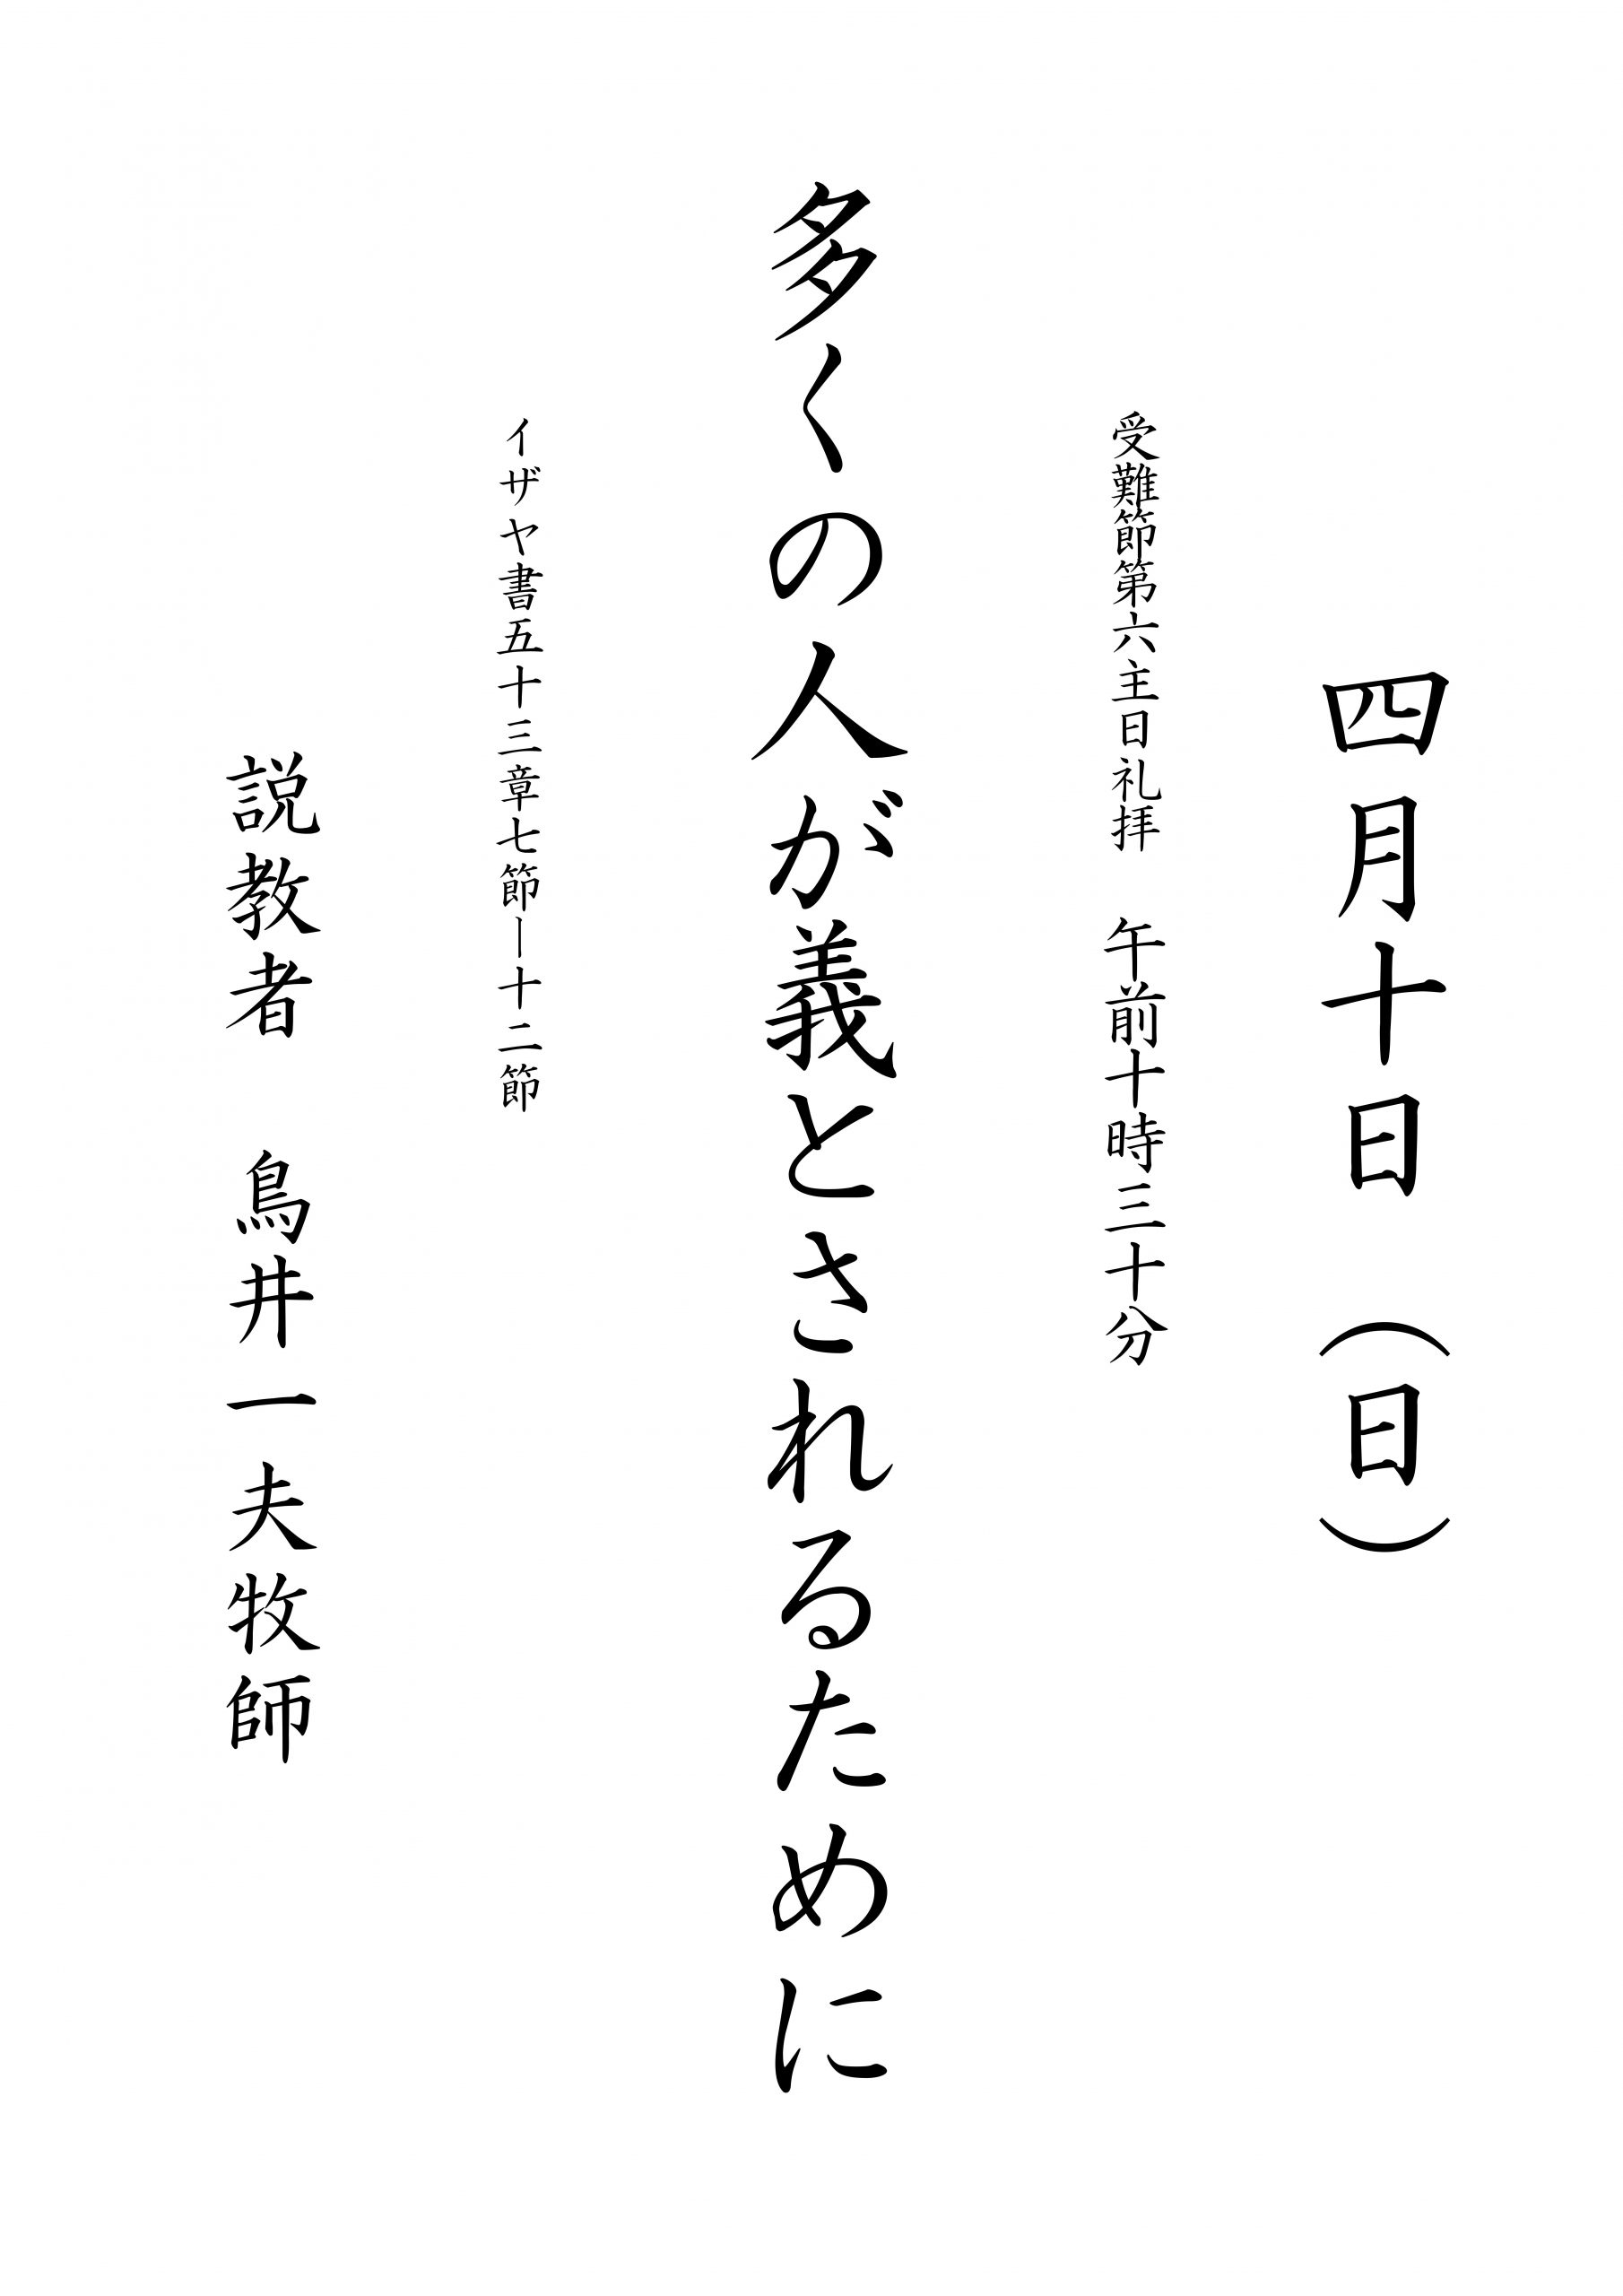 四月十日（日）
受難節第六主日礼拝　午前十時三十分
多くの人が義とされるために
イザヤ書五十三章七節―十二節
説教者　鳥井一夫牧師